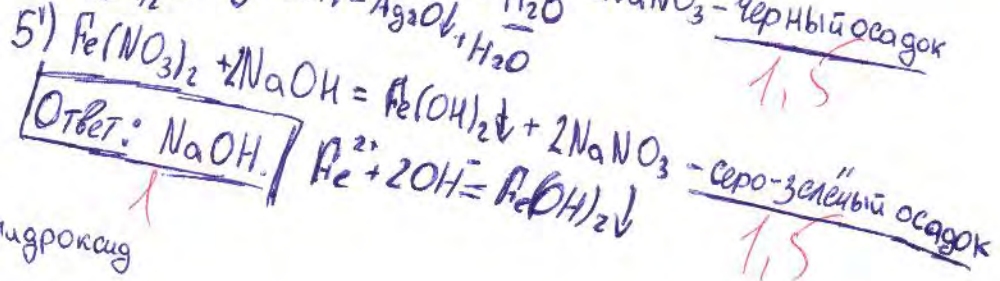 Ag₂O↓ + H₂O NO₃ - чёрный осадок
1,5
5') Fe(NO₃)₂ + 2NaOH = Fe(OH)₂↓ + 2NaNO₃ - серо-зелёный осадок
1,5
Ответ: NaOH. Fe²⁺ + 2OH⁻ = Fe(OH)₂↓
1
идроксид